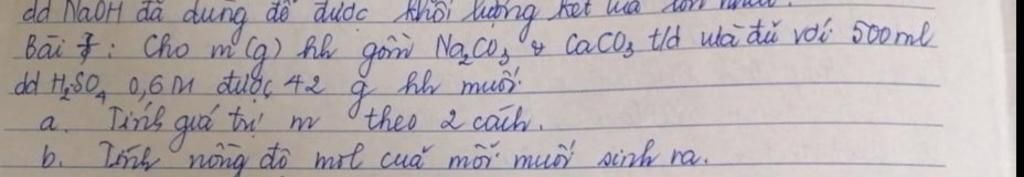 dd NaOH đã dùng để được khối lượng kết
Bài 7: Cho m (g) hh gồm Na₂CO₃ & CaCO₃ t/d vừa đủ với 500ml
dd H₂SO₄ 0,6M được 42 g hh muối.
a. Tính giá trị m theo 2 cách.
b. Tính nồng độ mol của mỗi muối sinh ra.